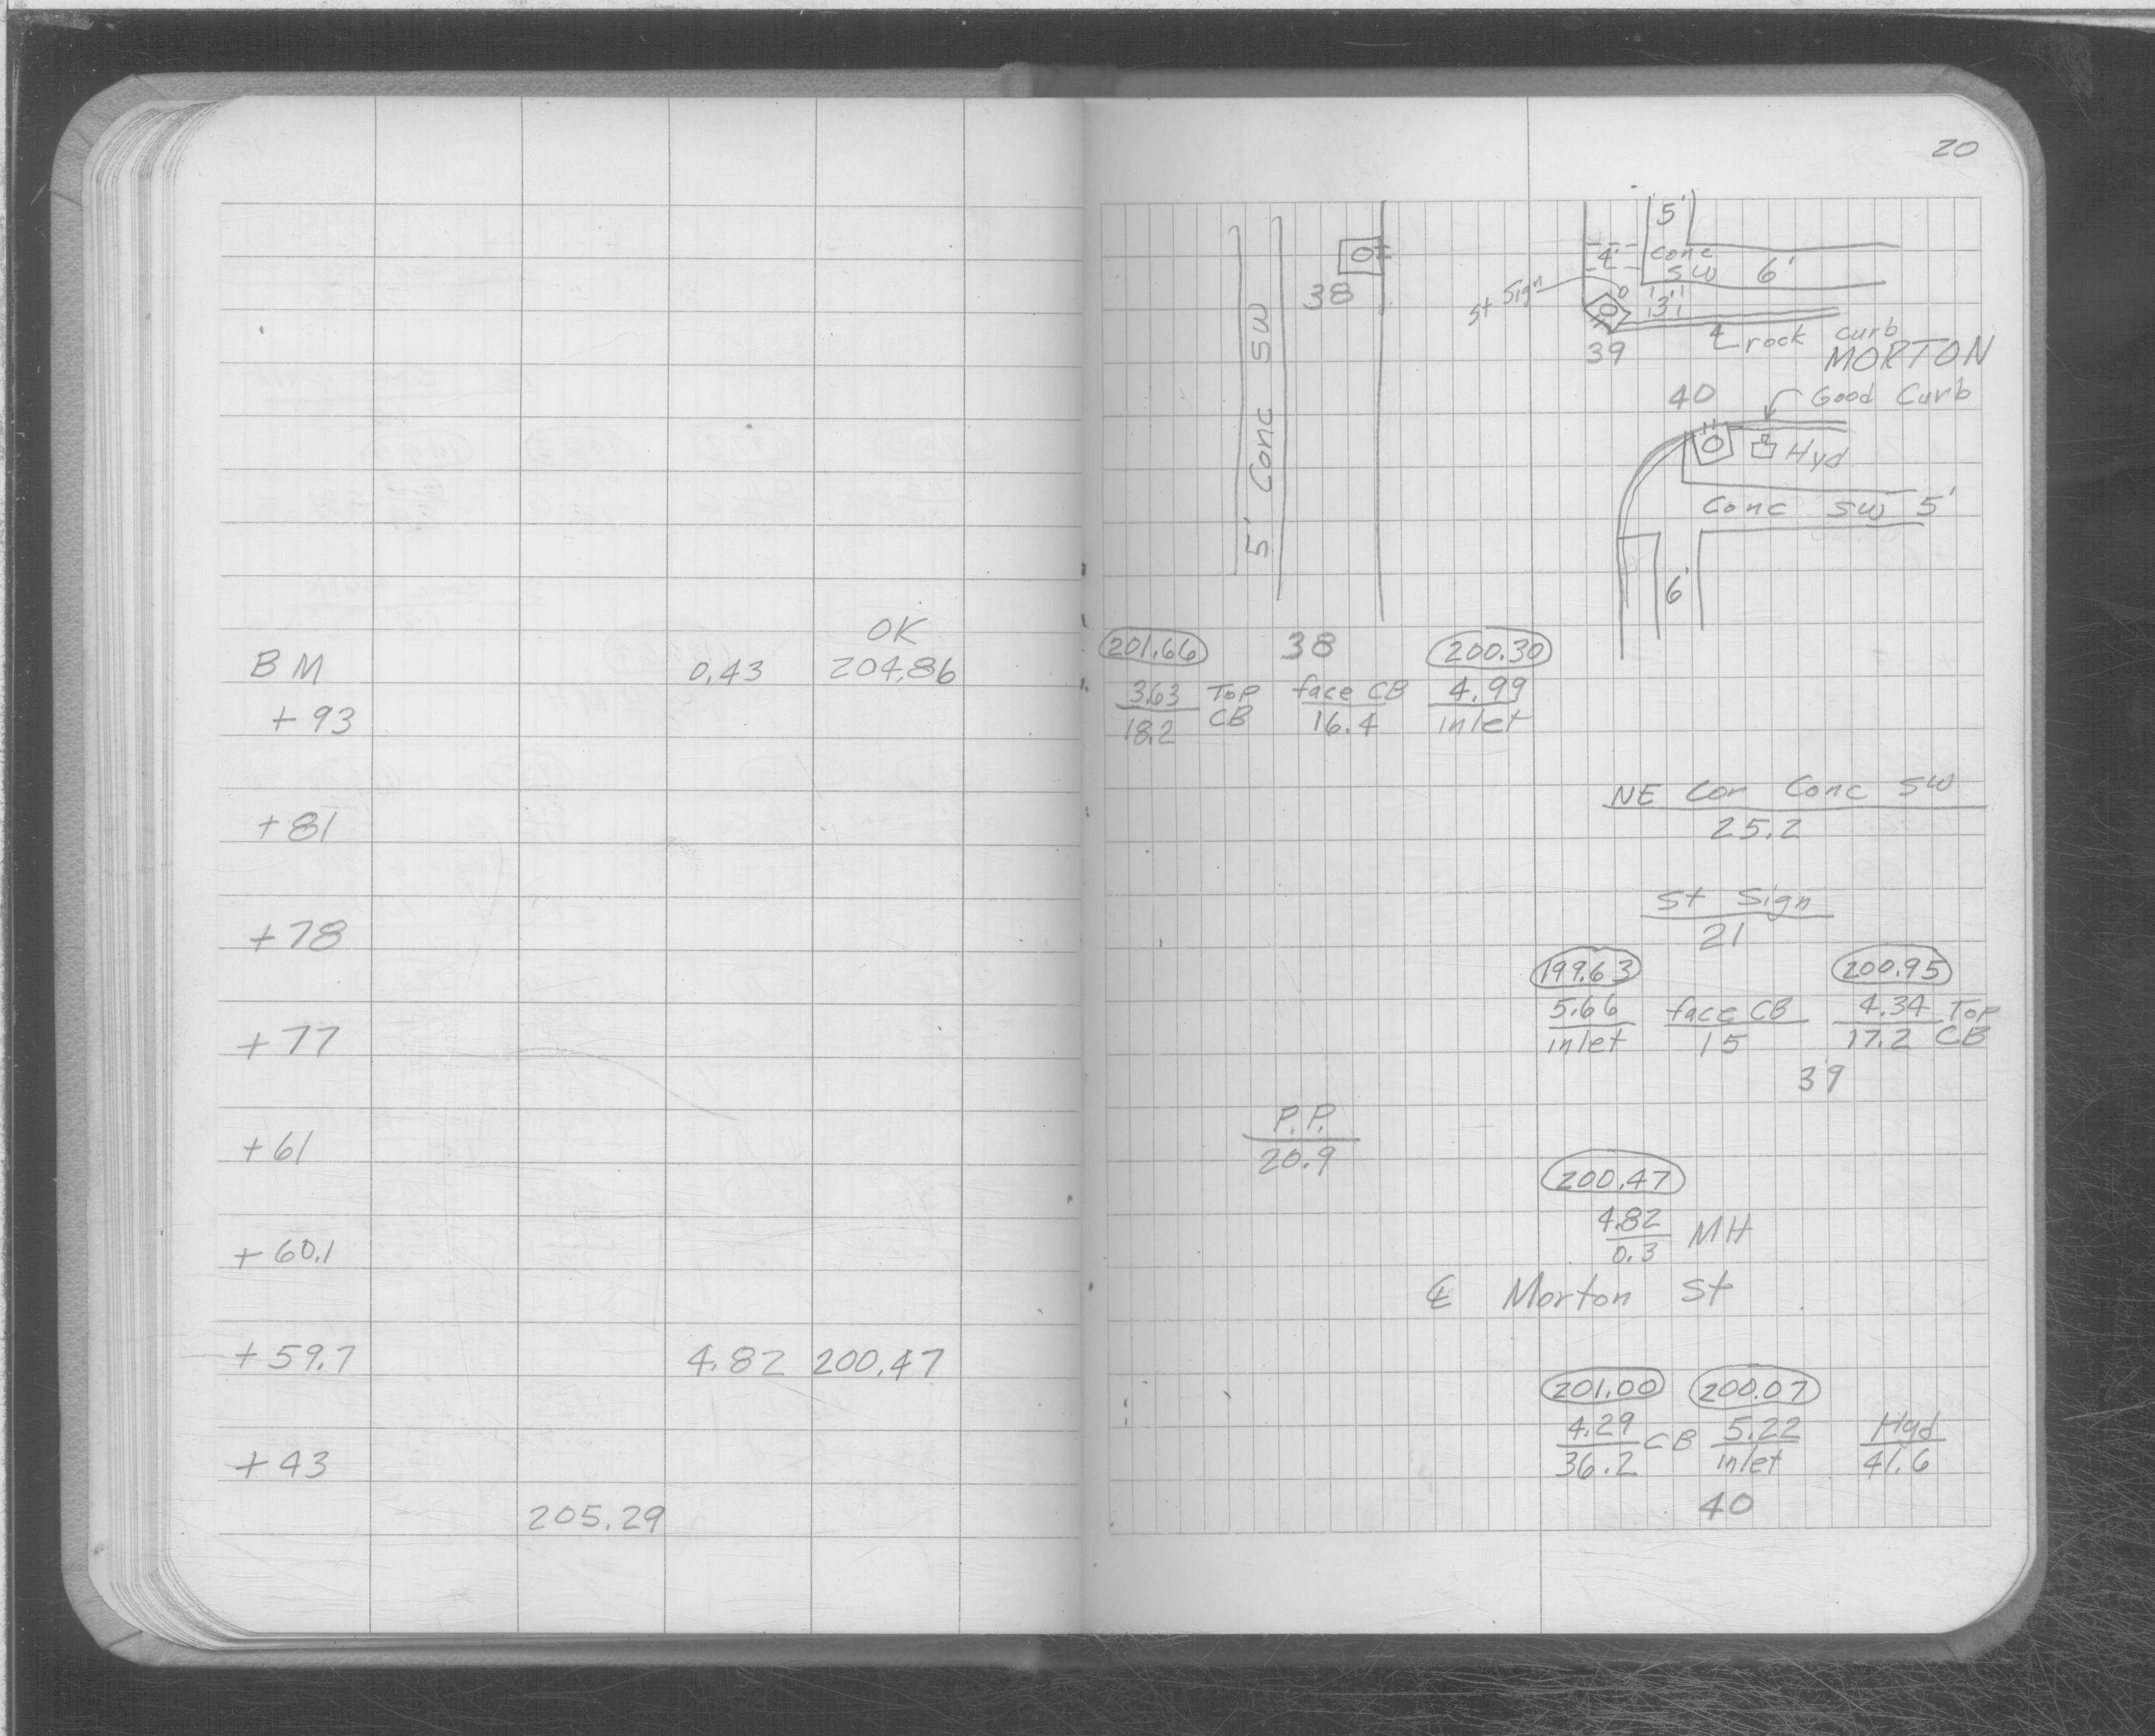 OK
BM 0.43 204.86
+93
+81
+78
+77
+61
+60.1
+59.7 4.82 200.47
+43
205.29
20
5'
4' Conc
SW 6'
St Sign
3'
38
39
rock curb
MORTON
40
Good Curb
Hyd
5' Conc SW
Conc SW 5'
6'
201.66 38 200.30
3.63 Top face CB 4.99
18.2 CB 16.4 inlet
NE Cor Conc SW
25.2
St Sign
21
199.63 200.95
5.66 face CB 4.34 Top
inlet 15 17.2 CB
39
P.P.
20.9
200.47
4.82 MH
0.3
℄ Morton St
201.00 200.07
4.29 CB 5.22 Hyd
36.2 inlet 41.6
40